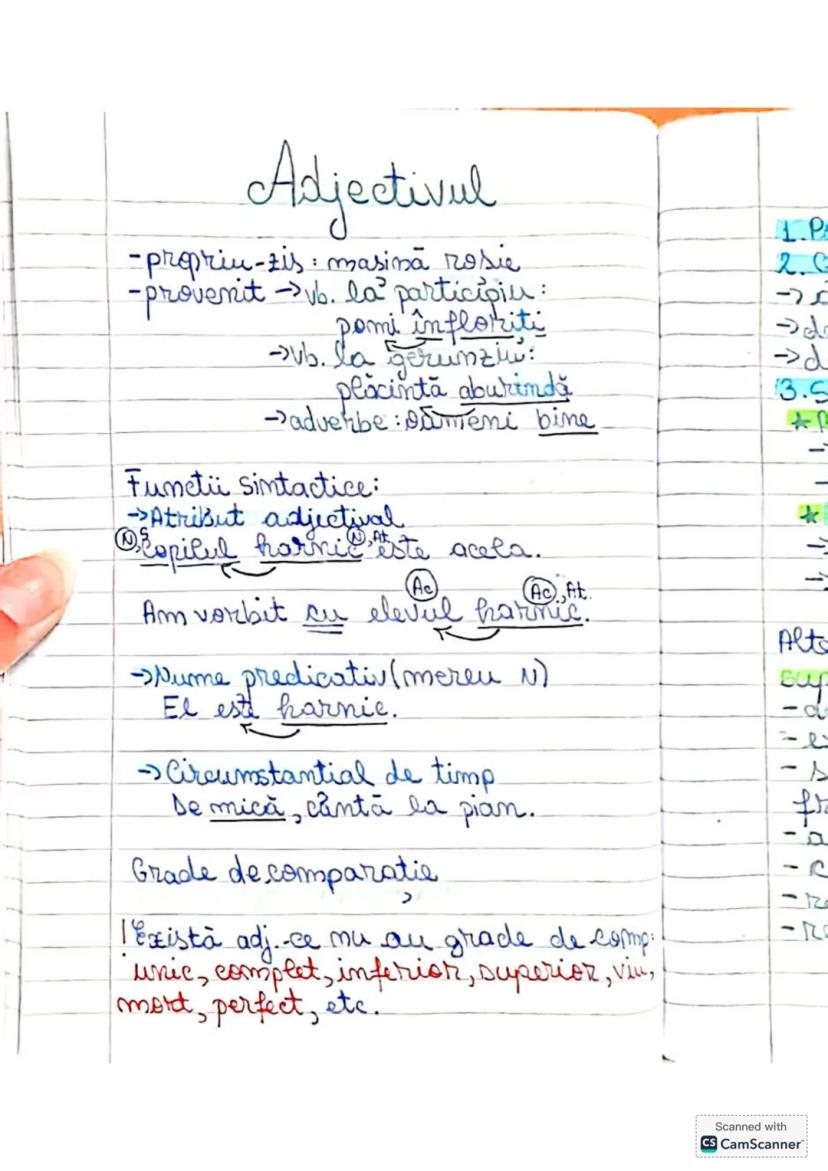 Adjectivul
-propriu-zis: masină rosie
-provenit →vb. la participiu:
pomi înfloriti
→vb. la gerunziu:
plăcintă aburindă
→adverbe: oameni bine
Functii sintactice:
→Atribut adjectival
(N), S (N), At.
Copilul harnic este acela.
(Ac) (Ac), At.
Am vorbit cu elevul harnic.
→Nume predicativ (mereu N)
El este harnic.
→Circumstantial de timp
De mică, cântă la pian.
Grade de comparație
! Există adj. ce nu au grade de comp:
unic, complet, inferior, superior, viu,
mort, perfect, etc.
1. P
2. C
→
→de
→d
3. S
★
★
Alte
sup
-
-
-
fr
-a
-c
-re
-re
Scanned with
CS CamScanner